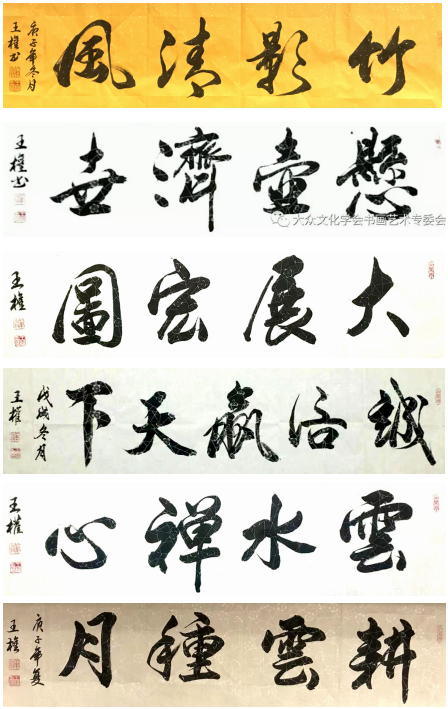 竹影清風
庚子年冬月
王權书
懸壺濟世
王權书
大众文化学会书画艺术专委会
大展宏圖
王權
誠信贏天下
戊戌冬月
王權
雲水禪心
王權
耕雲種月
庚子年夏
王權